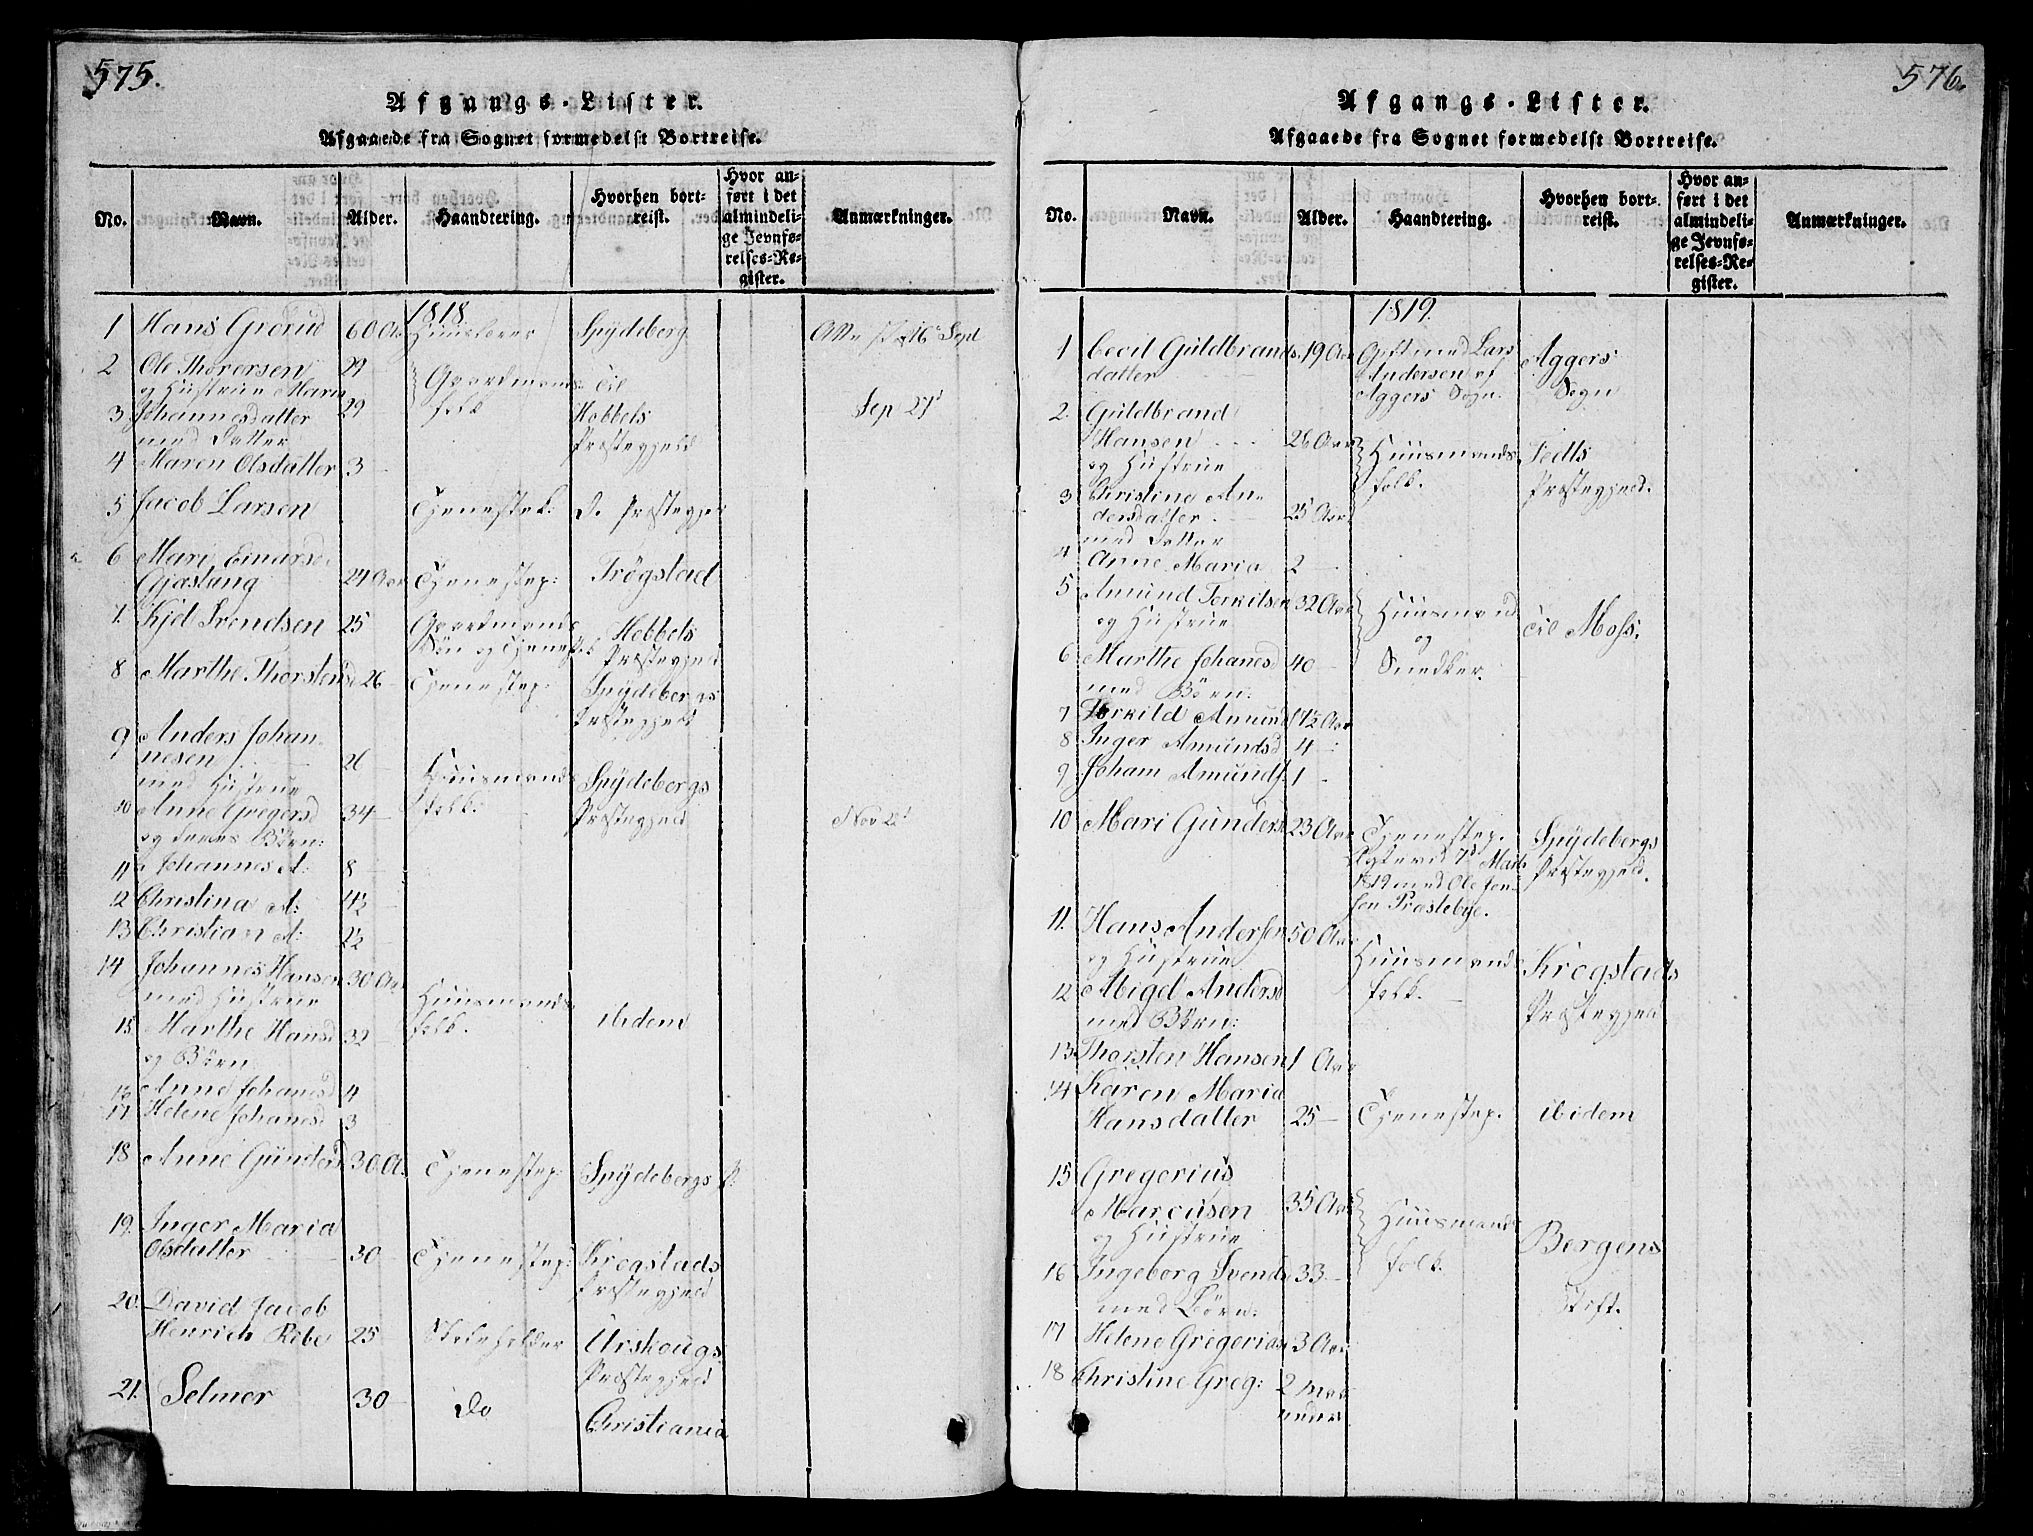 575.
Afgangs-Lister.
Afgaaede fra Sognet formedelst Bortreise.
No. Navn. Alder. Haandtering. Hvorhen bortreist. Hvor anført i det almindelige Jevnførelses-Register. Anmærkninger.
1818
1 Hans Grorud 60 Aar Spydeberg 16 Sept
2 Ole Thorersen 29 Gaardmands til
og Hustrue Maria folk Hobbels
3 Johannesdatter 29 Præstegjeld Sep 27
med Datter
4 Maren Olsdatter 3
5 Jacob Larsen Tjenestek: Do Præstegje
6 Mari Einarsd.
Gjaslung 24 Aar Tjenestep: Trögstad
7. Kjel Svendsen 25 Gaardmands Hobbels
Sön og Tjenestek Præstegjeld
8 Marthe Thorstensd 26 Tjenestep: Spydebergs
Præstegjeld
9 Anders Johan-
nesen 26 Huusmands Spydebergs
med Hustrue folk. Præstegjeld
10 Anne Gregersd 34 Nov 22
og deres Börn:
11 Johannes A: 8
12 Christina A: 4½
13 Christian A: 1½
14 Johannes Hansen 30 Aar
med Hustrue Huusmands
15 Marthe Hansd 32 folk. ibidem
og Börn
16 Anne Johanesd 4
17 Helene Johanesd 3
18 Anne Gunders 30 A. Tjenestep: Spydebergs P:
19. Inger Maria
Olsdatter 30 Tjenestep: Krogstads
Præstegjeld
20. David Jacob
Henrich Ribe 25 Urskougs
Præstegjeld
21. Selmer 30 Do Christiania
576.
Afgangs-Lister.
Afgaaede fra Sognet formedelst Bortreise.
No. Navn. Alder. Haandtering. Hvorhen bortreist. Hvor anført i det almindelige Jevnførelses-Register. Anmærkninger.
1819.
1 Cecil Guldbrands 19 Aar Gift med Lars Aggers
datter Andersen af Sogn
Aggers Sogn.
2. Guldbrand
Hansen 26 Aar Huusmands
og Hustrue folk. Præstegjeld.
3 Christina An-
dersdatter 25 Aar
med Datter
4 Anne Maria 2
5 Amund Terkilsen 32 Aar Huusmand
og Hustrue og til Moss.
6 Marthe Johanesd 40 Snedker.
med Börn:
7 Torkild Amund 7½ Aar
8 Inger Amundsd 4
9 Joham Amunds. 1
10 Mari Gunders 23 Aar Tjenestep. Spydebergs
7d Marts Præstegjeld.
1819 med Ole Jen-
sen Præstebye.
11. Hans Andersen 50 Aar Huusmands Krogstads
og Hustrue folk. Præstegjeld
12 Abigel Andersd
med Börn:
13 Thorsten Hansen 1 Aar
14 Karen Maria
Hansdatter 25 Tjenestep. ibidem
15 Gregerius
Marcusen 35 Aar Huusmands Bergens
og Hustrue folk. Stift.
16 Ingeborg Svends 33
med Börn:
17 Helene Gregerias 3 Aar
18 Christine Greg: 2 maa
neder